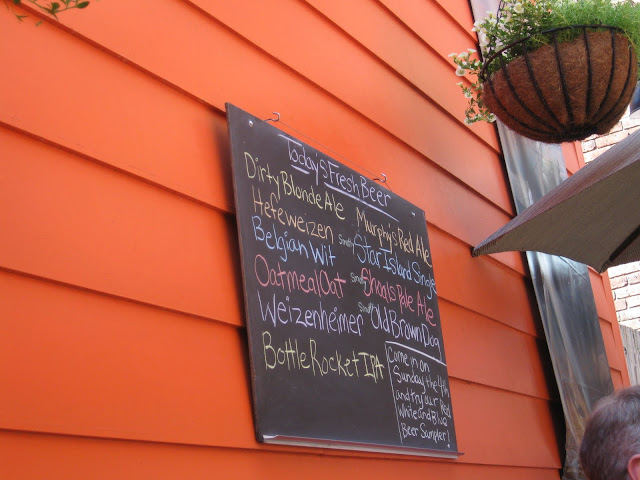 Today's Fresh Beer
Dirty Blonde Ale Murphy's Red Ale
Hefeweizen Smutty Star Island Single
Belgian Wit Smutty Shoals Pale Ale
Oatmeal Oat Smutty Old Brown Dog
Weizenheimer
Bottle Rocket IPA
Come in on
Sunday the 4th
and try our Red
White and Blue
Beer Sampler!